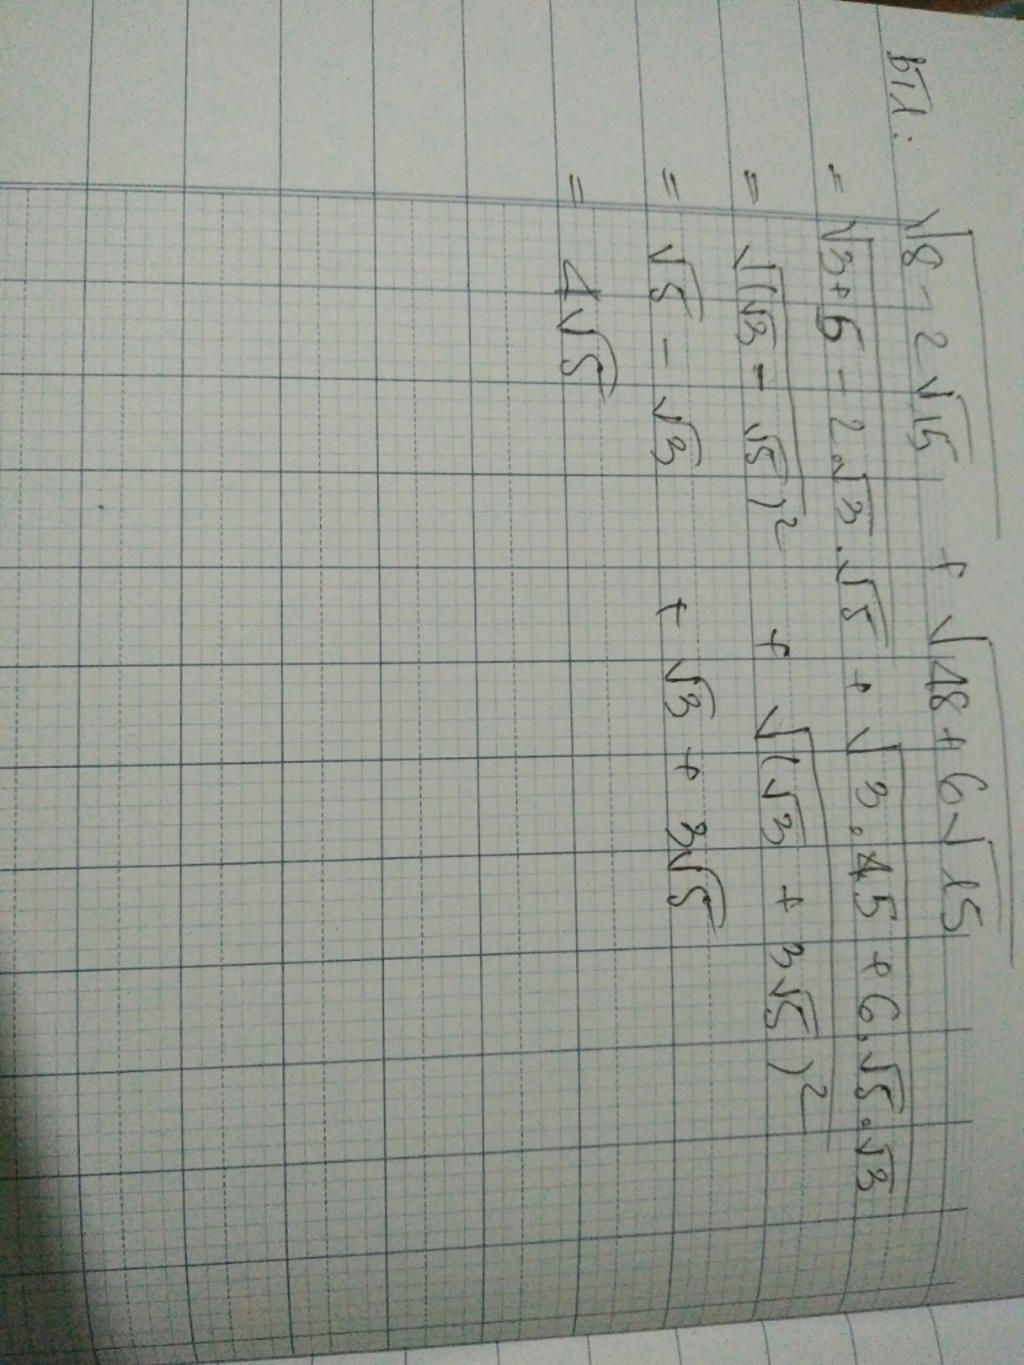 BT1: √(8 - 2√15) + √(48 + 6√15)
= √(3+5 - 2.√3.√5) + √(3.45 + 6.√5.√3)
= √((√3 - √5)²) + √((√3 + 3√5)²)
= √5 - √3 + √3 + 3√5
= 4√5